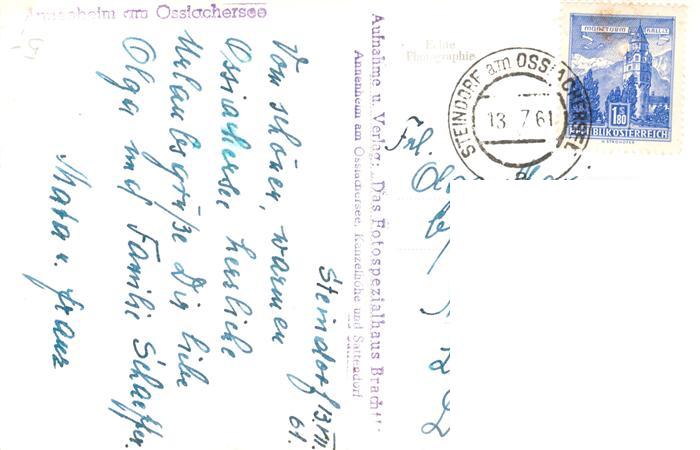 Annenheim am Ossiachersee
Steindorf, 13.VII.
61.
Vom schönen, warmen
Ossiachersee herzliche
Urlaubsgrüße Dir liebe
Olga und Familie Schaeffer.
u. Franz
Aufnahme u. Verlag: „Das Fotospezialhaus
Annenheim am Ossiachersee, Kanzelhöhe und Sattendorf
Echte
Photographie
STEINDORF am OSSIACHERSEE
13. 7. 61
MÜNZTURM HALL I.T.
S 1.80
REPUBLIK ÖSTERREICH
Frl.
Olga